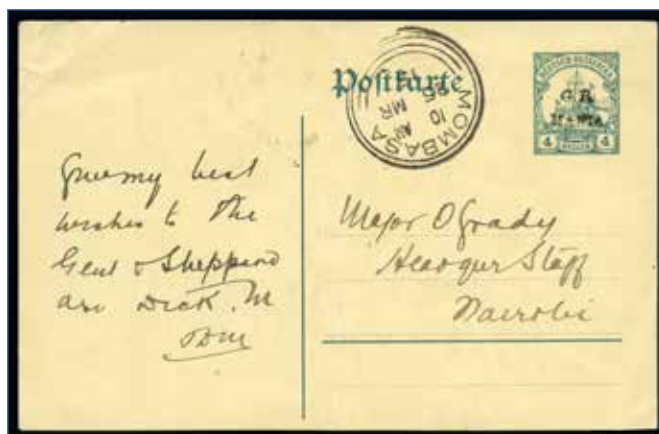 Postkarte
MOMBASA
10 AM
MR
G.R.
MAFIA
4 4
Give my best
wishes to the
Genl & Sheppard
Major O'Grady
Headqur Staff
Nairobi